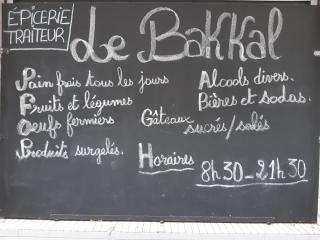 ÉPICERIE
TRAITEUR
Le BaKKal
Pain frais tous les jours
Fruits et légumes
Oeufs fermiers
Produits surgelés.
Alcools divers.
Bières et sodas.
Gâteaux
sucrés/salés
Horaires
8h30-21h30